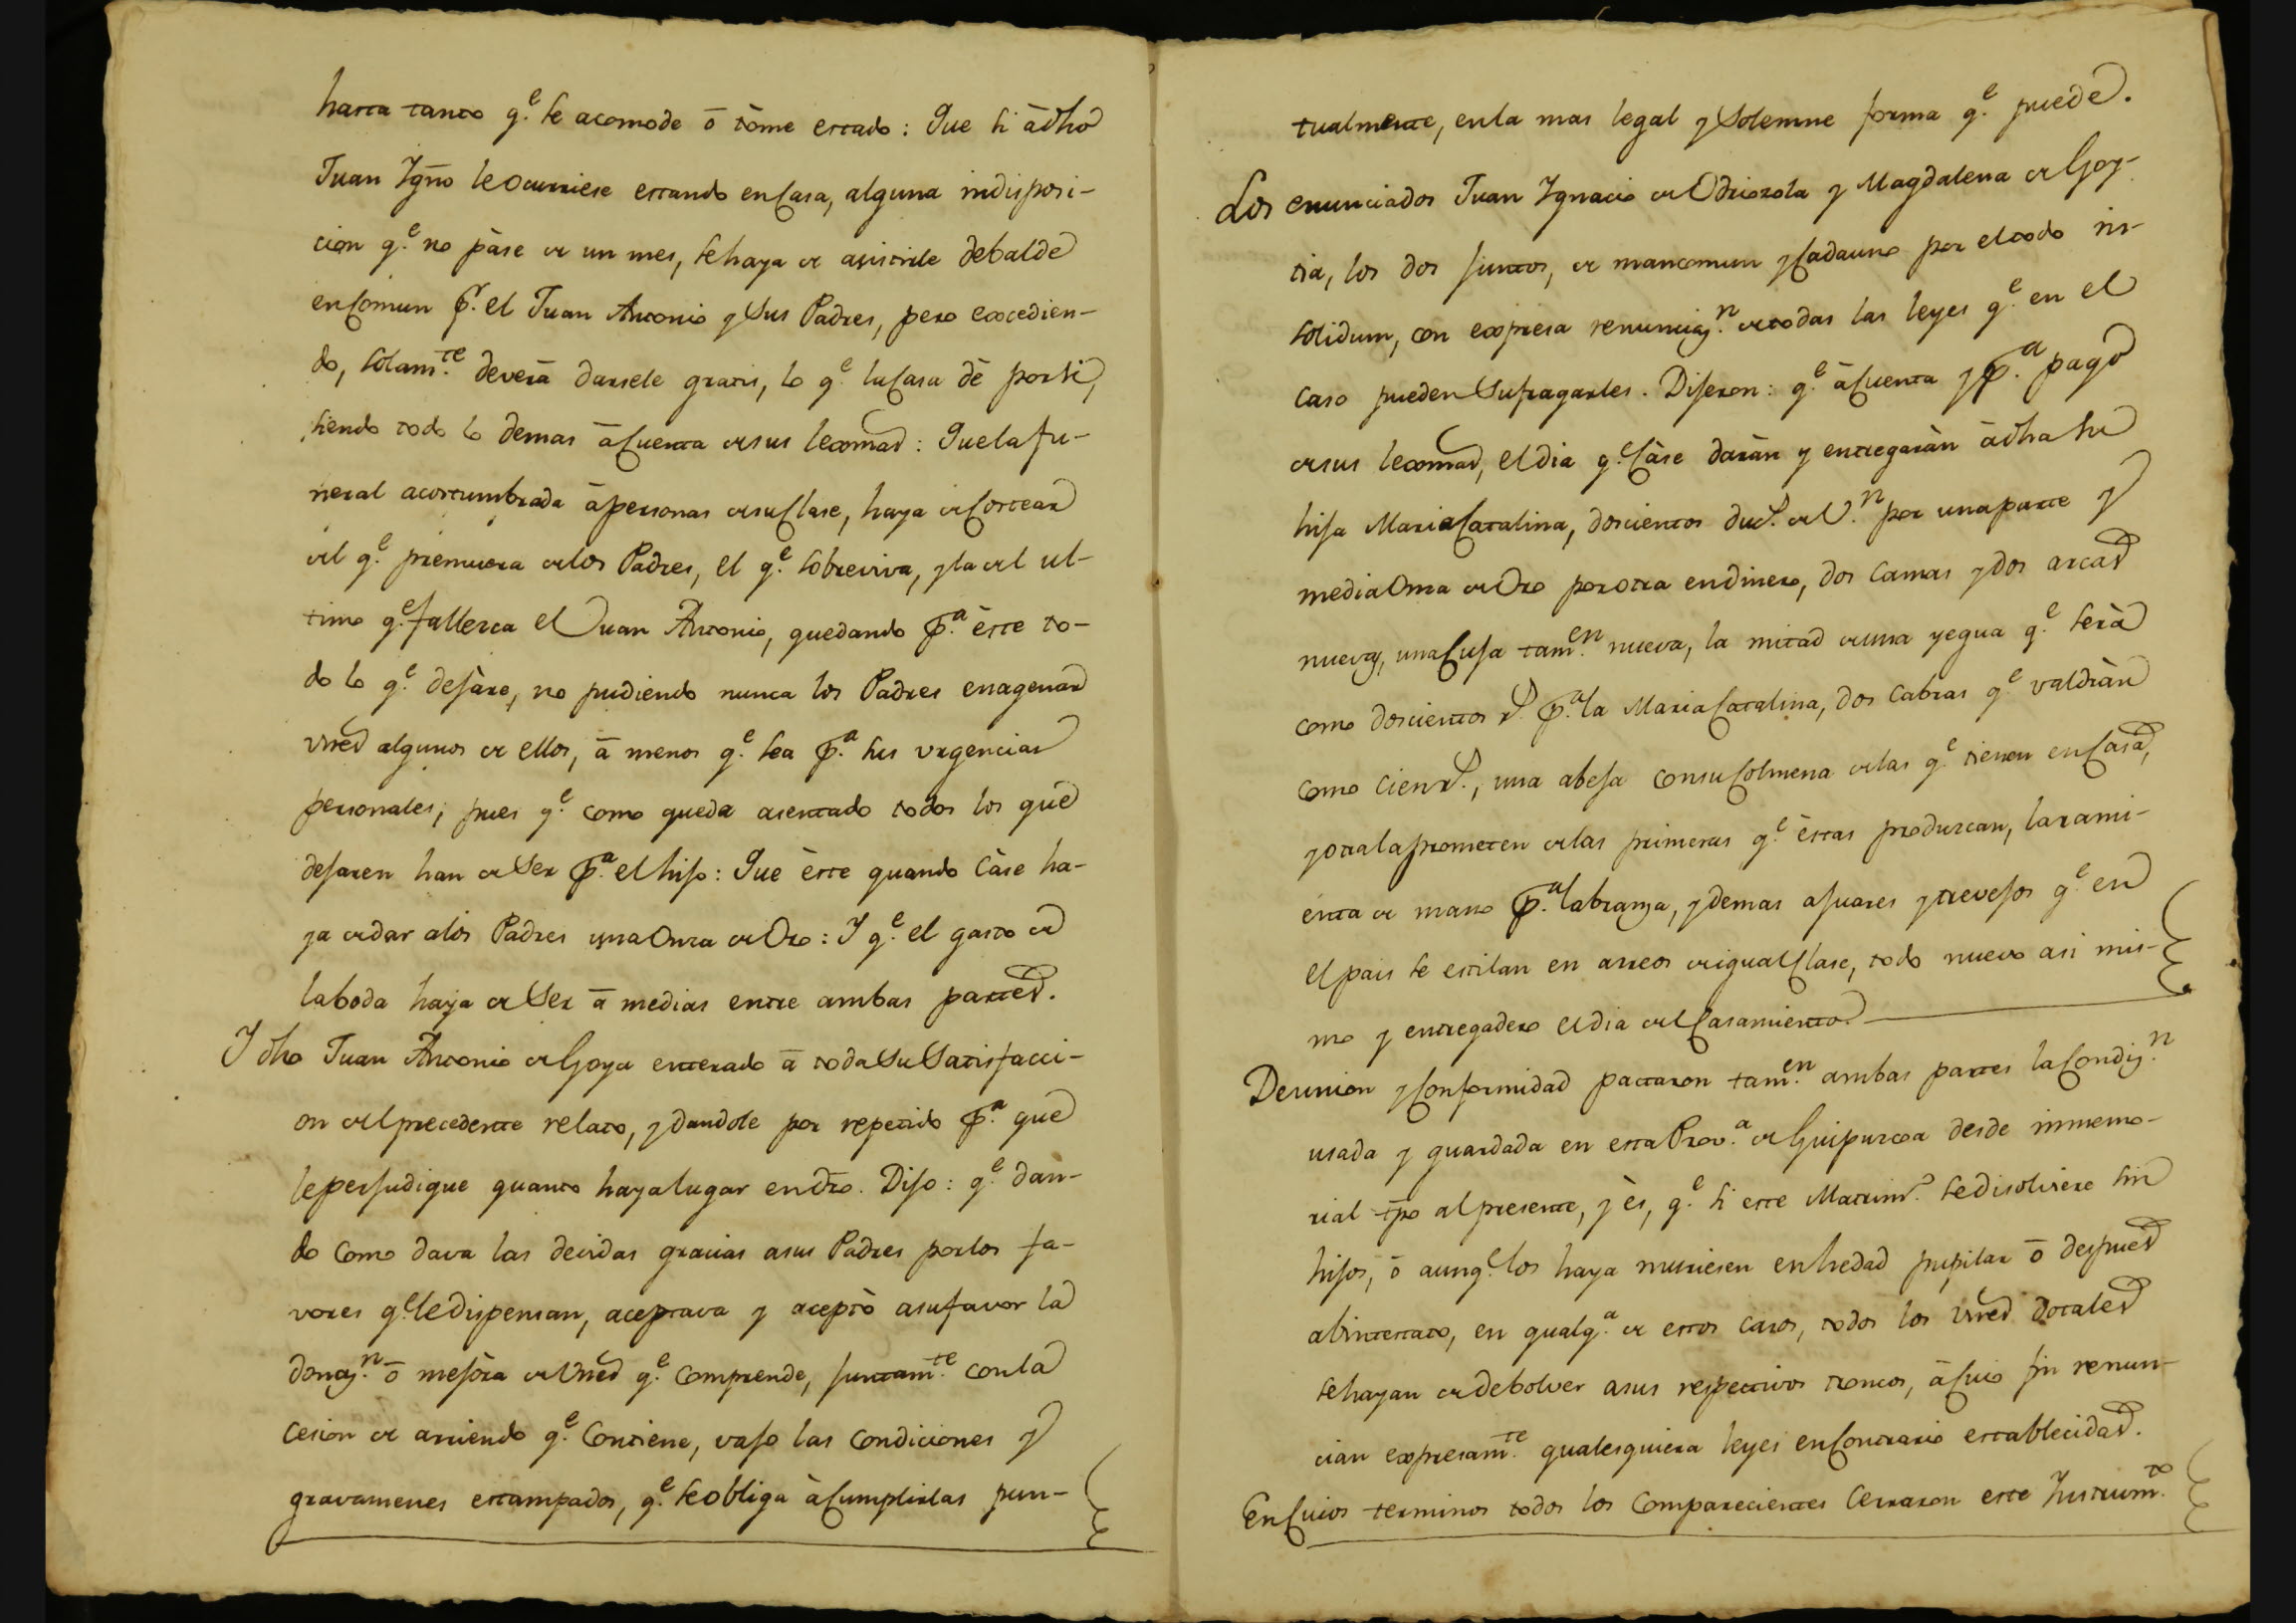 hasta tanto q.e se acomode ō tòme estado: Que si ādho
Juan Ygno le ocurriese estando en Casa, alguna indisposi-
cion q.e no pàse de un mes, se haya de asistirle debalde
en Comun p.r el Juan Antonio y Sus Padres, pero excedien-
do, solam.te deverà darsele gratis, lo q.e la Casa dè por si,
siendo todo lo demas ā Cuenta de sus lexmas: Que la fu-
neral acostumbrada ā personas de su Clase, haya de Costear
del q.e premuera de los Padres, el q.e sobreviva, y la del ul-
timo q.e fallezca el Juan Antonio, quedando p.a èste to-
do lo q.e dejàre, no pudiendo nunca los Padres enagenar
vnes algunos de ellos, ā menos q.e sea p.a sus urgencias
personales; pues q.e como queda asentado todos los que
dejaren han de Ser p.a el hijo: Que èste quando Càse ha-
ya de dar a los Padres una Onza de Oro: Y q.e el gasto de
la boda haya de Ser ā medias entre ambas partes.
Y dho Juan Antonio de Goya enterado ā toda Su Satisfacci-
on del precedente relato, y dandole por repetido p.a que
le perjudique quanto haya lugar en dro. Dijo: q.e dan-
do como dava las devidas gracias a sus Padres por los fa-
vores q.e le dispensan, aceptava y aceptò a su favor la
donaz.n ō mejòra de Vnes q.e comprende, juntam.te con la
cesion de arriendo q.e Contiene, vajo las condiciones y
gravamenes estampados, q.e se obliga à Cumplirlas pun-
tualmente, en la mas legal y Solemne forma q.e puede.
Los enunciados Juan Ignacio de Odriozola y Magdalena de Goy-
tia, los dos juntos, de mancomun y Cada uno por el todo in-
solidum, con expresa renunciaz.n de todas las leyes q.e en el
caso pueden Sufragarles. Dijeron: q.e ā Cuenta y p.a pago
de sus lexmas, el dia q.e Càse daràn y entregaràn ā dha su
hija Maria Catalina, doscientos duc.s de V.n por una parte y
media Onza de Oro por otra en dinero, dos camas y dos arcas
nuevas, una Cuja tam.en nueva, la mitad de una yegua q.e serà
como doscientos r.s p.a la Maria Catalina, dos Cabras q.e valdràn
como cien r.s, una abeja con su Colmena de las q.e tienen en Casa,
y otra la prometen de las primeras q.e èstas produzcan, la rami-
enta de mano p.a labranza, y demas ajuares y trevejos q.e en
el pais se estilan en arreos de igual Clase, todo nuevo asi mis-
mo y entregadero el dia del Casamiento
De union y Conformidad pactaron tam.en ambas partes la Condiz.n
usada y guardada en esta Prov.a de Guipuzcoa desde inmemo-
rial tpo al presente, y ès, q.e si este Matrim.o se disolviere sin
hijos, ō aunq.e los haya muriesen en hedad pupilar ō despues
abintestato, en qualq.a de estos casos, todos los vnes dotales
se hayan de debolver a sus respectivos troncos, ā Cuio fin renun-
cian expresam.te qualesquiera leyes en Contrario establecidas.
En Cuios terminos todos los Comparecientes Cerraron este Instrum.to